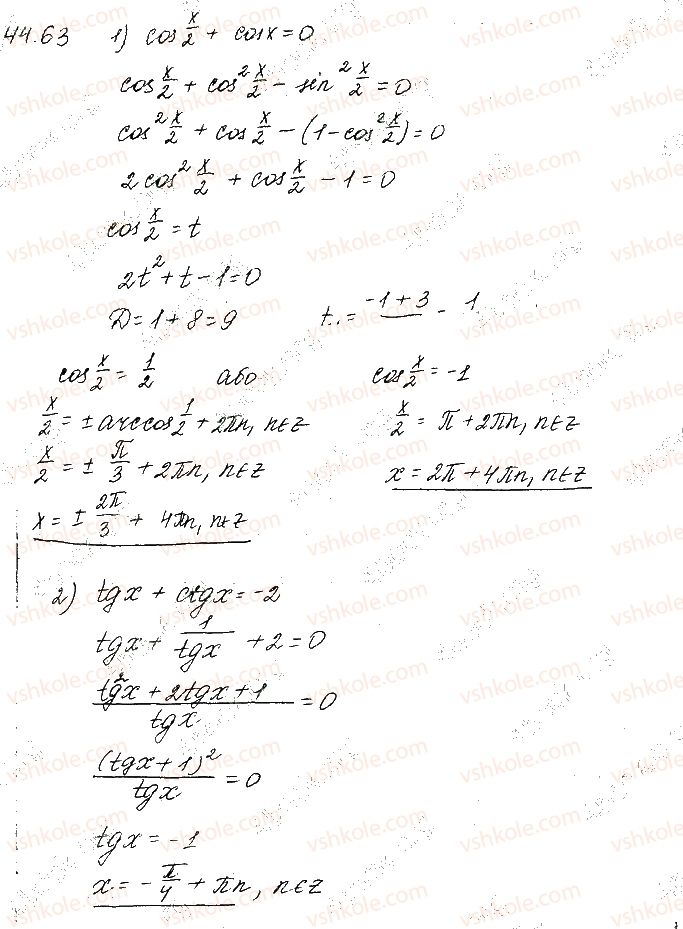 44.63 1) cos x/2 + cosx = 0
cos x/2 + cos² x/2 − sin² x/2 = 0
cos² x/2 + cos x/2 − (1 − cos² x/2) = 0
2cos² x/2 + cos x/2 − 1 = 0
cos x/2 = t
2t² + t − 1 = 0
D = 1 + 8 = 9 t.. = −1 + 3 - 1
cos x/2 = 1/2 або cos x/2 = −1
x/2 = ± arccos 1/2 + 2πn, n∈Z x/2 = π + 2πn, n∈Z
x/2 = ± π/3 + 2πn, n∈Z x = 2π + 4πn, n∈Z
x = ± 2π/3 + 4πn, n∈Z
2) tgx + ctgx = −2
tgx + 1/tgx + 2 = 0
(tg²x + 2tgx + 1)/tgx = 0
(tgx + 1)²/tgx = 0
tgx = −1
x = − π/4 + πn, n∈Z